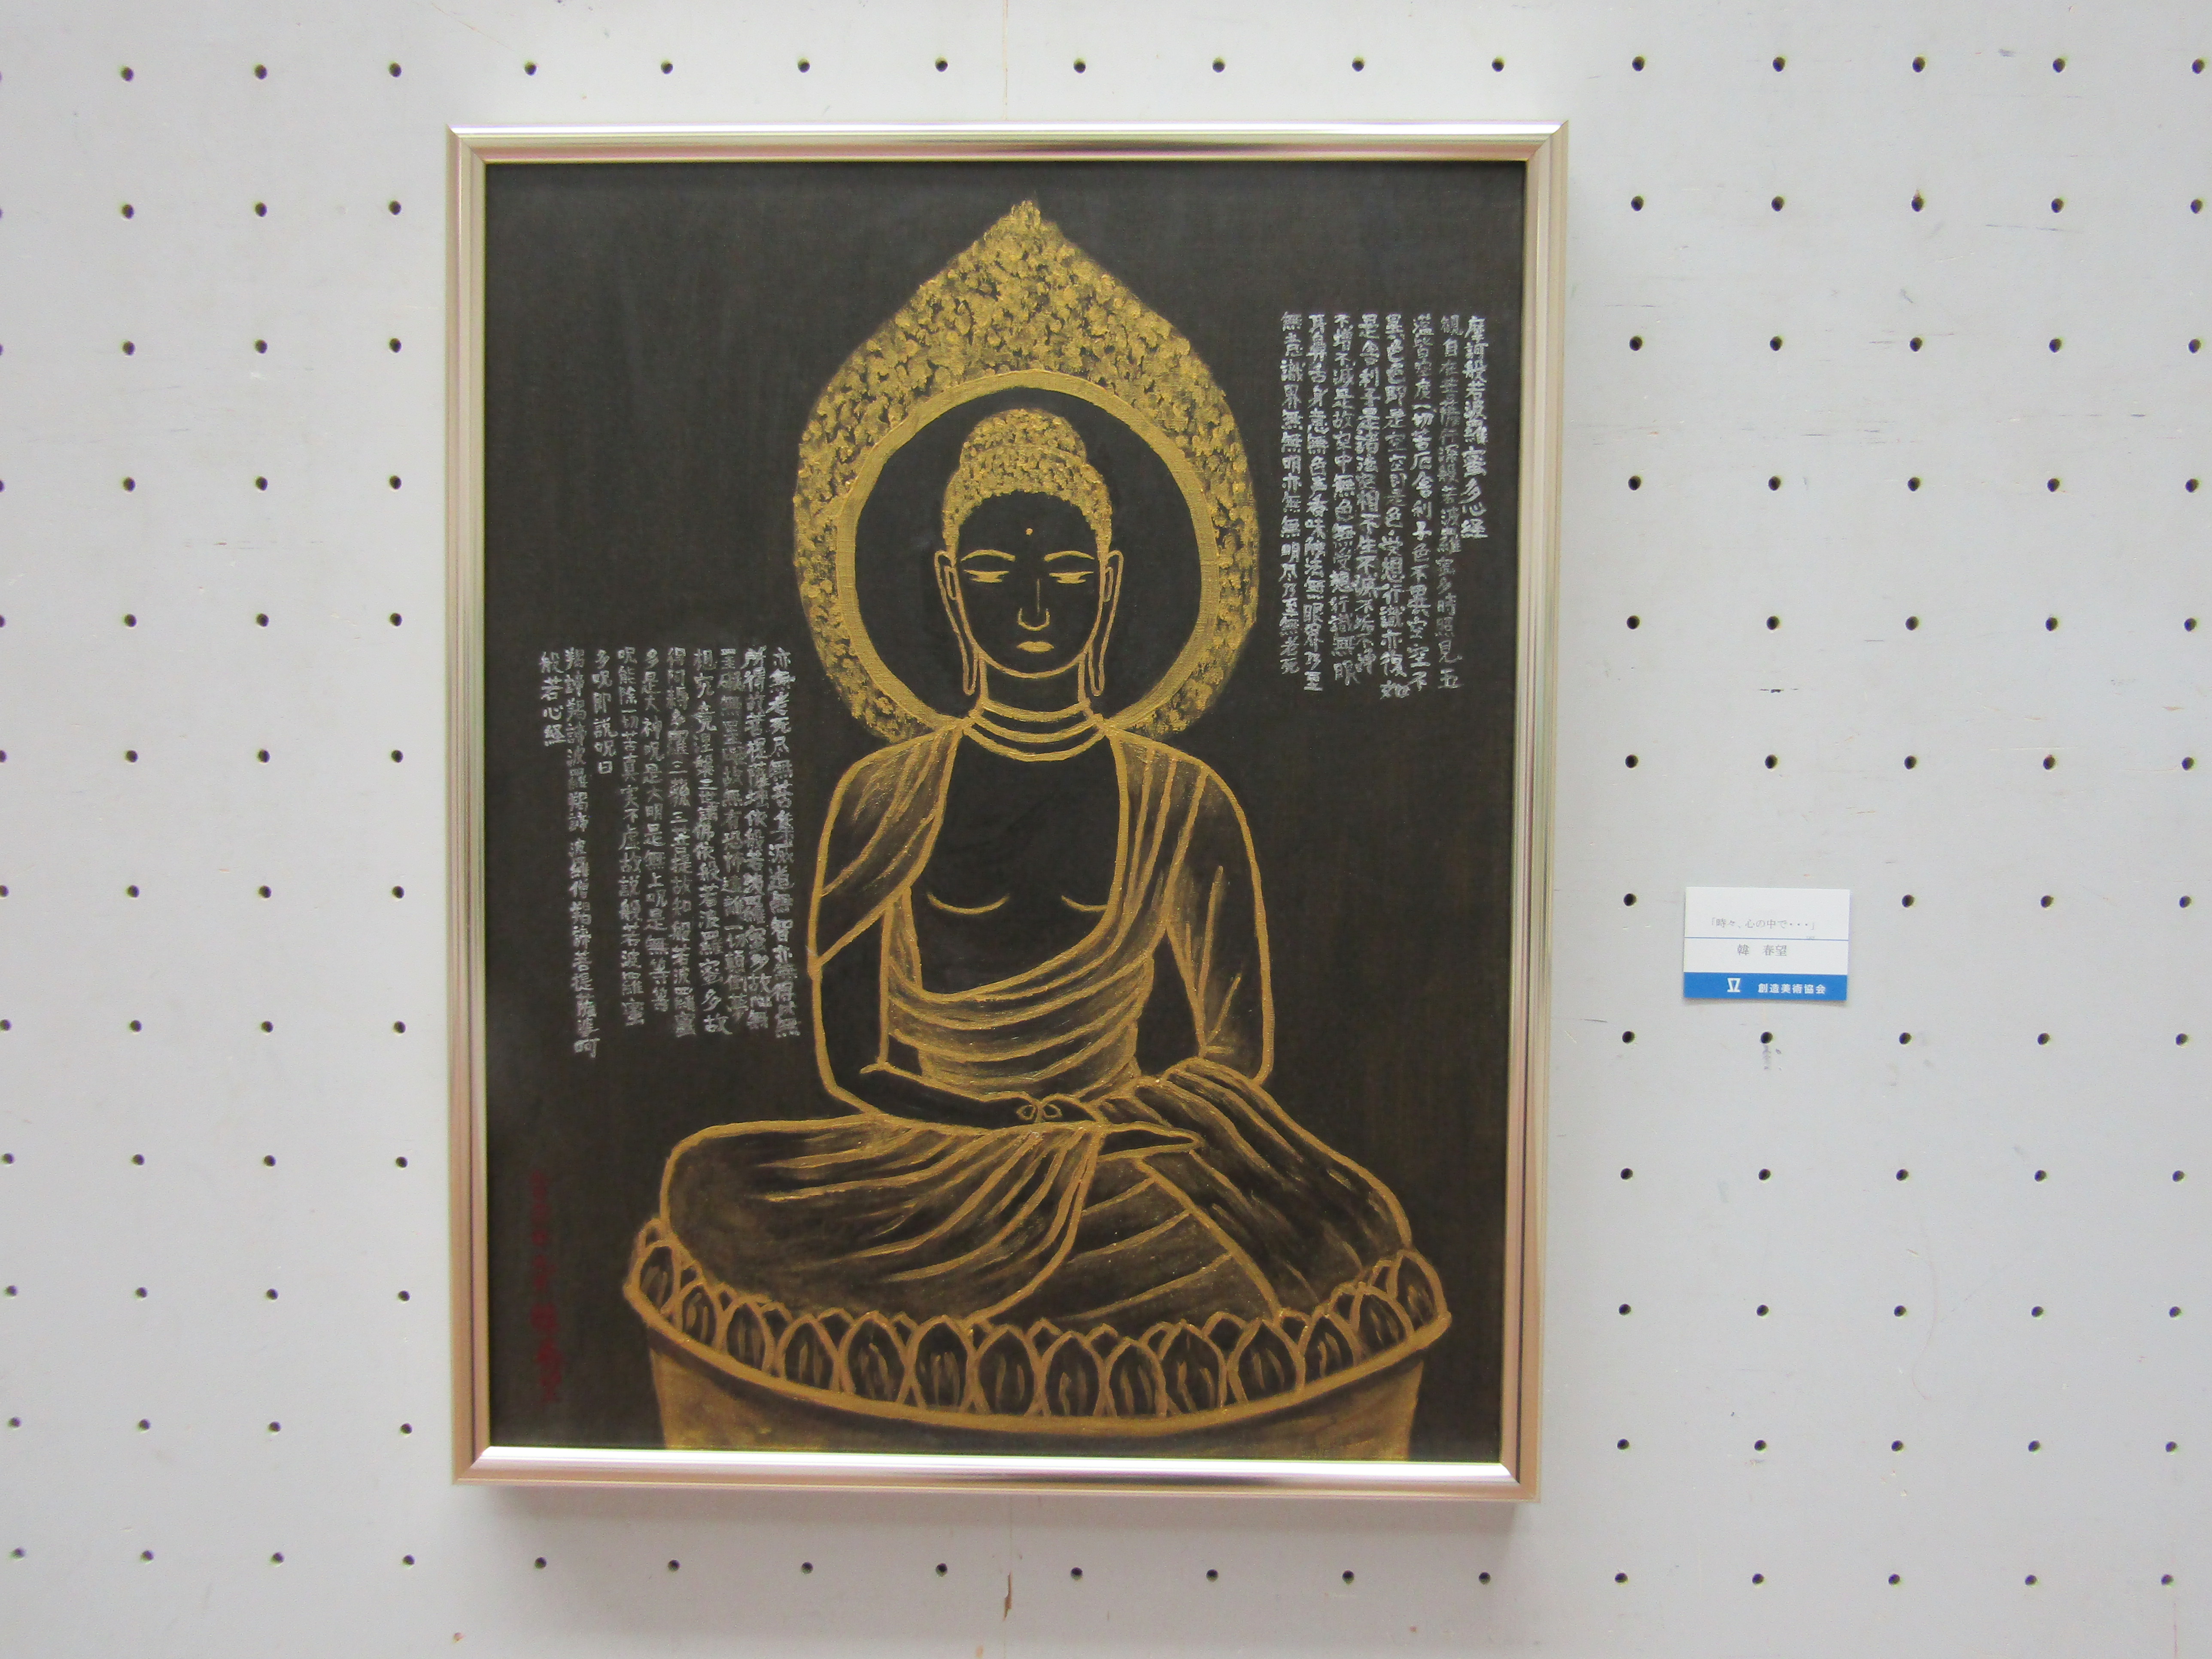 摩訶般若波羅蜜多心経
観自在菩薩行深般若波羅蜜多時照見五
蘊皆空度一切苦厄舎利子色不異空空不
異色色即是空空即是色受想行識亦復如
是舎利子是諸法空相不生不滅不垢不浄
不増不減是故空中無色無受想行識無眼
耳鼻舌身意無色声香味触法無眼界乃至
無意識界無無明亦無無明尽乃至無老死
亦無老死尽無苦集滅道無智亦無得以無
所得故菩提薩埵依般若波羅蜜多故心無
罣礙無罣礙故無有恐怖遠離一切顛倒夢
想究竟涅槃三世諸佛依般若波羅蜜多故
得阿耨多羅三藐三菩提故知般若波羅蜜
多是大神呪是大明呪是無上呪是無等等
呪能除一切苦真実不虚故説般若波羅蜜
多呪即説呪曰
羯諦羯諦波羅羯諦 波羅僧羯諦菩提薩婆訶
般若心経
「時々、心の中で・・・」
韓 春望
創造美術協会